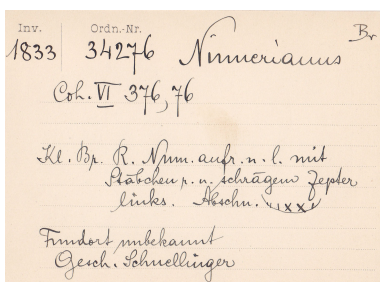 Inv. Ordn.-Nr. Br
1833 34276 Numerianus
Coh. VI 376, 76
Kl. Br. R. Num. aufr. n. l. mit
Stäbchen r. u. schrägem Zepter
links. Abschn. XXI
Fundort unbekannt
Gesch. Schnellinger